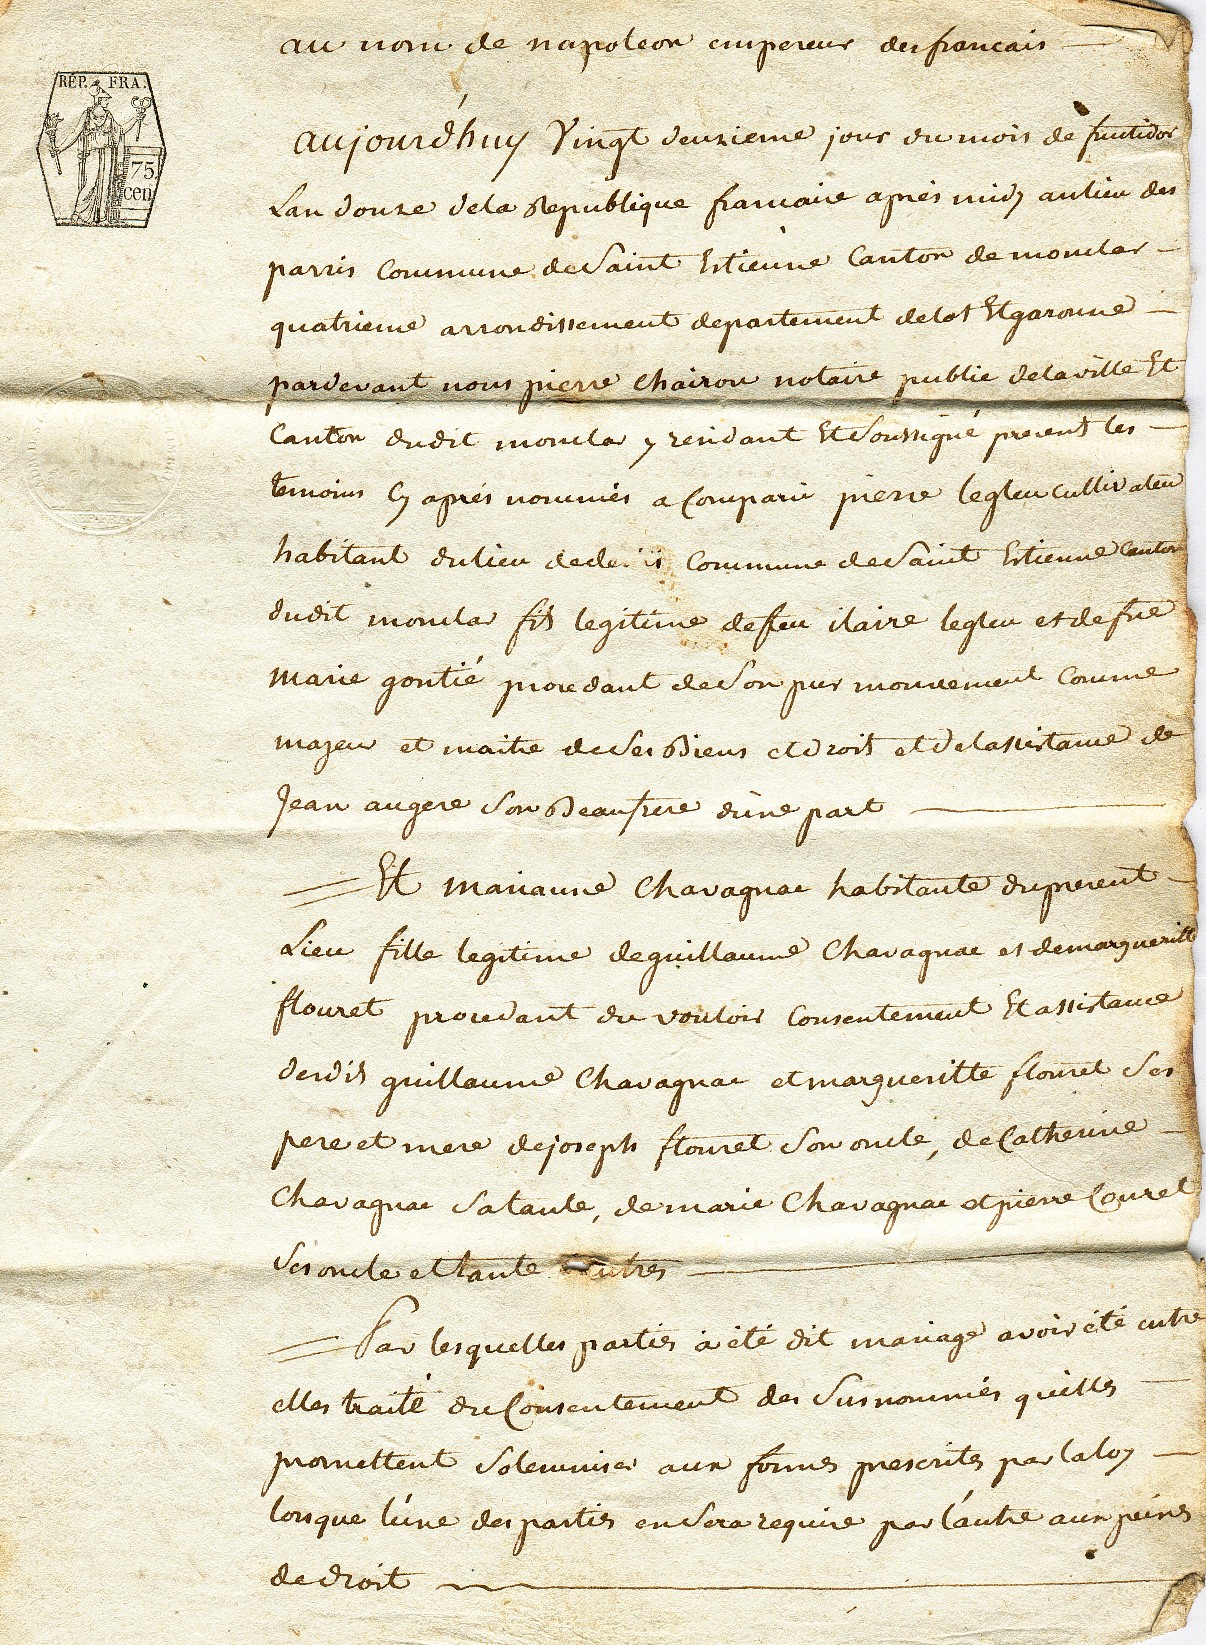 au nom de napoleon empereur des francais
REP. FRA.
75.
cen
aujourd'huy Vingt deuzieme jour du mois de fructidor
Lan douze dela Republique francaise aprés midy au lieu des
parris Commune de Saint Estienne Canton de monclar
quatrieme arrondissement departement delot Et garonne
pardevant nous pierre Chairou notaire public dela ville Et
Canton dudit monclar y residant Et Soussigné present les
temoins Cy aprés nommés a Comparu pierre legleu Cultivateur
habitant du lieu de Commune de Saint Estienne Canton
dudit monclar fils legitime de feu ilaire legleu et de fue
marie gontié procedant de Son pur mouvement Comme
majeur et maitre de Ses Biens et droits et de lassistance de
Jean augere Son Beaufrere d'une part
Et marianne Chavagnac habitante du present
Lieu fille legitime de guillaume Chavagnac et de margueritte
flouret procedant du vouloir Consentement Et assistance
desdits guillaume Chavagnac et margueritte flouret Ses
pere et mere de joseph flouret Son oncle, de Catherine
Chavagnac Sa tante, de marie Chavagnac et pierre Couret
Ses oncle et tante d'autres
Par lesquelles parties à été dit mariage avoir été entre
elles traité du Consentement des Susnommés qu'elles
promettent Solemniser aux formes prescrites par la loy
lorsque l'une des parties en Sera requise par l'autre aux peines
de droit